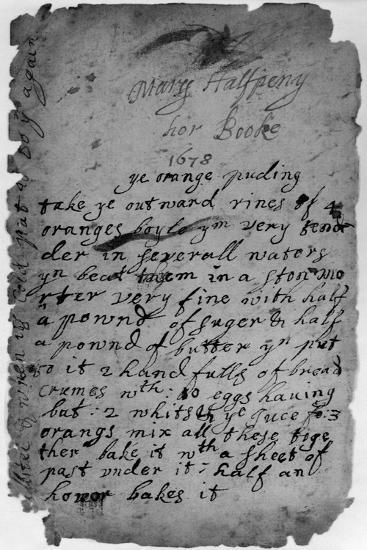 Mary Halfpeny
hor Booke
1678
ye orange puding
take ye outward rines of 4
oranges boyle ym very tend
der in severall waters
yn beat them in a ston mo
rter very fine with half
a pownd of suger & half
a pownd of butter yn put
to it 2 hand fulls of bread
crumes wth: 10 eggs having
but: 2 whits ye guce fo: 3
orangs mix all these toge
ther bake it wth a sheet of
past under it - half an
howor bakes it
when it boy again